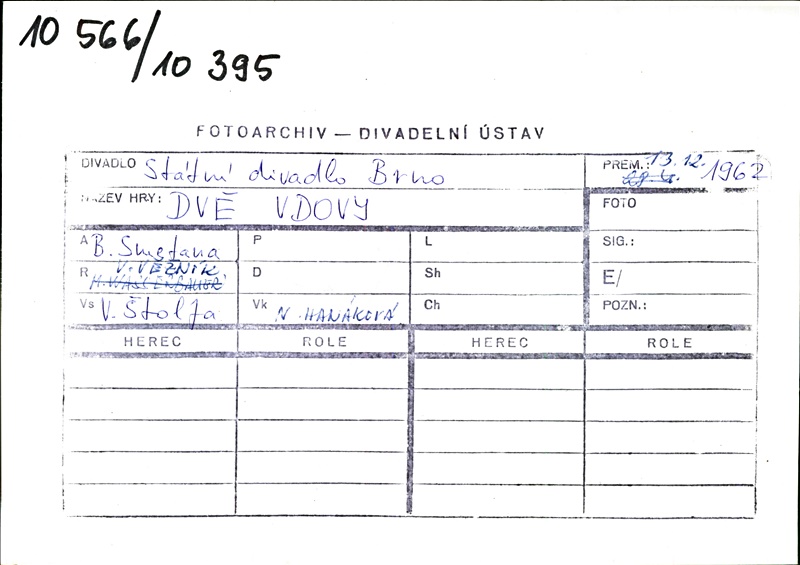 10 566/10 395
FOTOARCHIV — DIVADELNÍ ÚSTAV
DIVADLO Státní divadlo Brno
PREM.: 13.12. 1962
NÁZEV HRY: DVĚ VDOVY
FOTO
A B. Smetana P L SIG.:
R V. VĚŽNÍK D Sh E/
Vs V. Štolfa Vk N. HANÁKOVÁ Ch POZN.:
HEREC ROLE HEREC ROLE